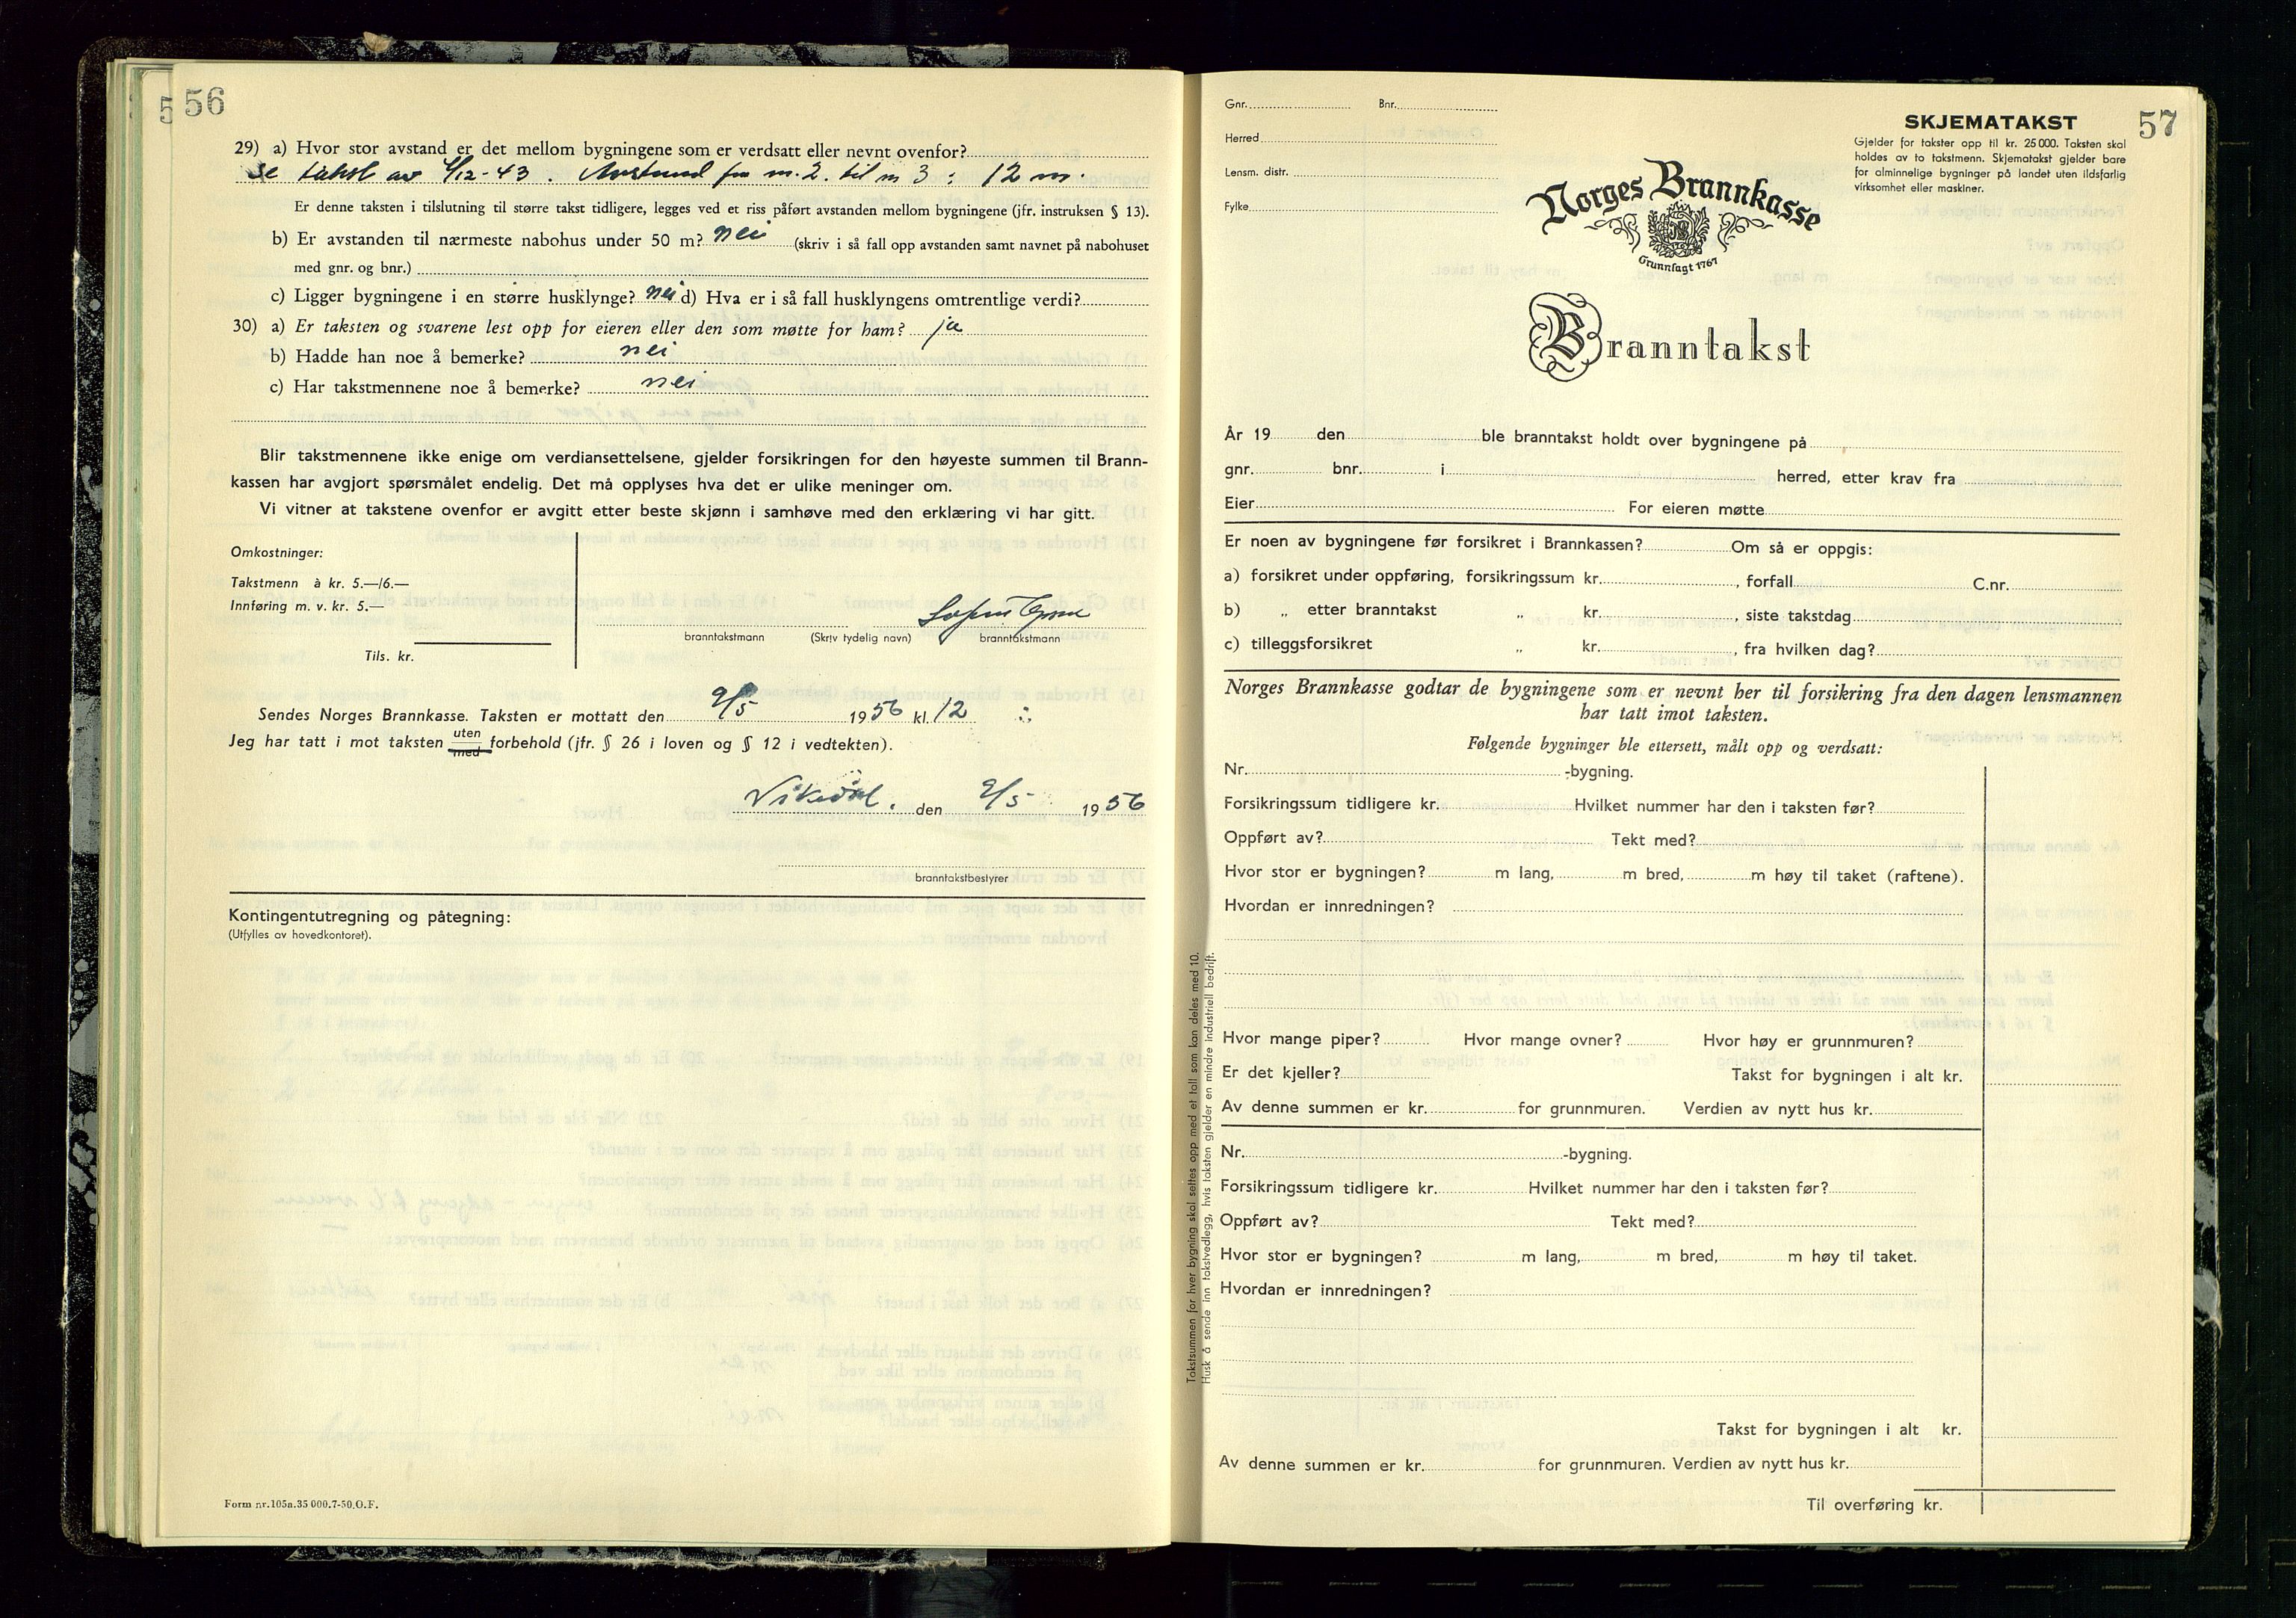 56
29) a) Hvor stor avstand er det mellom bygningene som er verdsatt eller nevnt ovenfor?
Se takst av 4/12-43. Avstand fra nr. 2. til nr 3: 12 m.
Er denne taksten i tilslutning til større takst tidligere, legges ved et riss påført avstanden mellom bygningene (jfr. instruksen § 13).
b) Er avstanden til nærmeste nabohus under 50 m? nei (skriv i så fall opp avstanden samt navnet på nabohuset
med gnr. og bnr.)
c) Ligger bygningene i en større husklynge? nei d) Hva er i så fall husklyngens omtrentlige verdi?
30) a) Er taksten og svarene lest opp for eieren eller den som møtte for ham? ja
b) Hadde han noe å bemerke? nei
c) Har takstmennene noe å bemerke? nei
Blir takstmennene ikke enige om verdiansettelsene, gjelder forsikringen for den høyeste summen til Brann-
kassen har avgjort spørsmålet endelig. Det må opplyses hva det er ulike meninger om.
Vi vitner at takstene ovenfor er avgitt etter beste skjønn i samhøve med den erklæring vi har gitt.
Omkostninger:
Takstmenn à kr. 5.—/6.—
Innføring m. v. kr. 5.—
Tils. kr.
branntakstmann (Skriv tydelig navn) branntakstmann
Sendes Norges Brannkasse. Taksten er mottatt den 9/5 1956 kl. 12
Jeg har tatt i mot taksten uten
med forbehold (jfr. § 26 i loven og § 12 i vedtekten).
Vikedal, den 9/5 1956
branntakstbestyrer
Kontingentutregning og påtegning:
(Utfylles av hovedkontoret).
Form nr. 105a. 35 000. 7-50. O. F.
57
Gnr. Bnr.
Herred
Lensm. distr.
Fylke
Norges Brannkasse
Grunnlagt 1767
SKJEMATAKST
Gjelder for takster opp til kr. 25 000. Taksten skal
holdes av to takstmenn. Skjematakst gjelder bare
for alminnelige bygninger på landet uten ildsfarlig
virksomhet eller maskiner.
Branntakst
År 19 den ble branntakst holdt over bygningene på
gnr. bnr. i herred, etter krav fra
Eier For eieren møtte
Er noen av bygningene før forsikret i Brannkassen? Om så er oppgis:
a) forsikret under oppføring, forsikringssum kr. , forfall C.nr.
b) „ etter branntakst „ kr. , siste takstdag
c) tilleggsforsikret „ kr. , fra hvilken dag?
Norges Brannkasse godtar de bygningene som er nevnt her til forsikring fra den dagen lensmannen
har tatt imot taksten.
Følgende bygninger ble ettersett, målt opp og verdsatt:
Nr. -bygning.
Forsikringssum tidligere kr. Hvilket nummer har den i taksten før?
Oppført av? Tekt med?
Hvor stor er bygningen? m lang, m bred, m høy til taket (raftene).
Hvordan er innredningen?
Hvor mange piper? Hvor mange ovner? Hvor høy er grunnmuren?
Er det kjeller? Takst for bygningen i alt kr.
Av denne summen er kr. for grunnmuren. Verdien av nytt hus kr.
Nr. -bygning.
Forsikringssum tidligere kr. Hvilket nummer har den i taksten før?
Oppført av? Tekt med?
Hvor stor er bygningen? m lang, m bred, m høy til taket.
Hvordan er innredningen?
Takst for bygningen i alt kr.
Av denne summen er kr. for grunnmuren. Verdien av nytt hus kr.
Til overføring kr.
Takstsummen for hver bygning skal settes opp med et tall som kan deles med 10.
Husk å sende inn takstvedlegg, hvis taksten gjelder en mindre industriell bedrift.